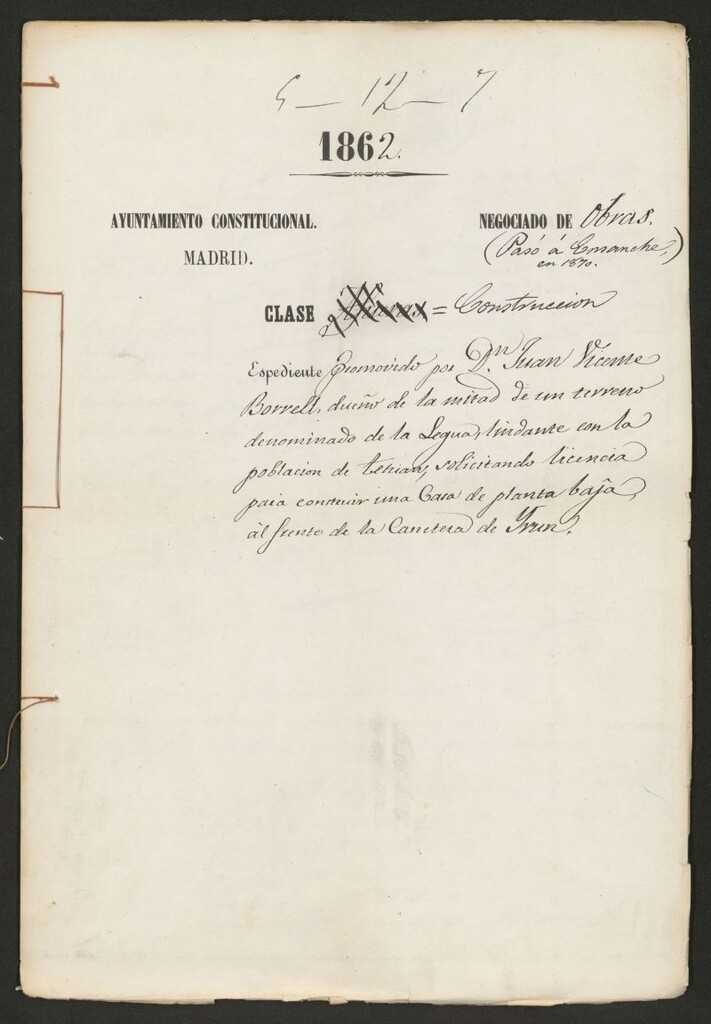 5 - 12 - 7
1862.
AYUNTAMIENTO CONSTITUCIONAL.
MADRID.
NEGOCIADO DE Obras.
(Pasó á Ensanche,
en 1870.)
CLASE = Construccion
Espediente promovido por Dn Juan Vicente
Borrell, dueño de la mitad de un terreno
denominado de la Legua, lindante con la
poblacion de Tetuan, solicitando licencia
para construir una Casa de planta baja,
al frente de la Carretera de Yrun.